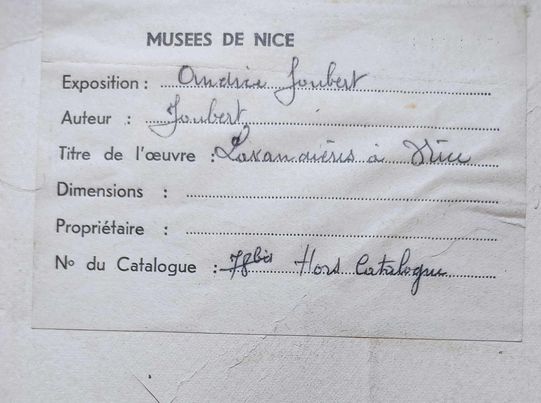 MUSEES DE NICE
Exposition : Andrée Joubert
Auteur : Joubert
Titre de l'œuvre : Lavandières à Nice
Dimensions :
Propriétaire :
Nº du Catalogue : 78bis Hors Catalogue